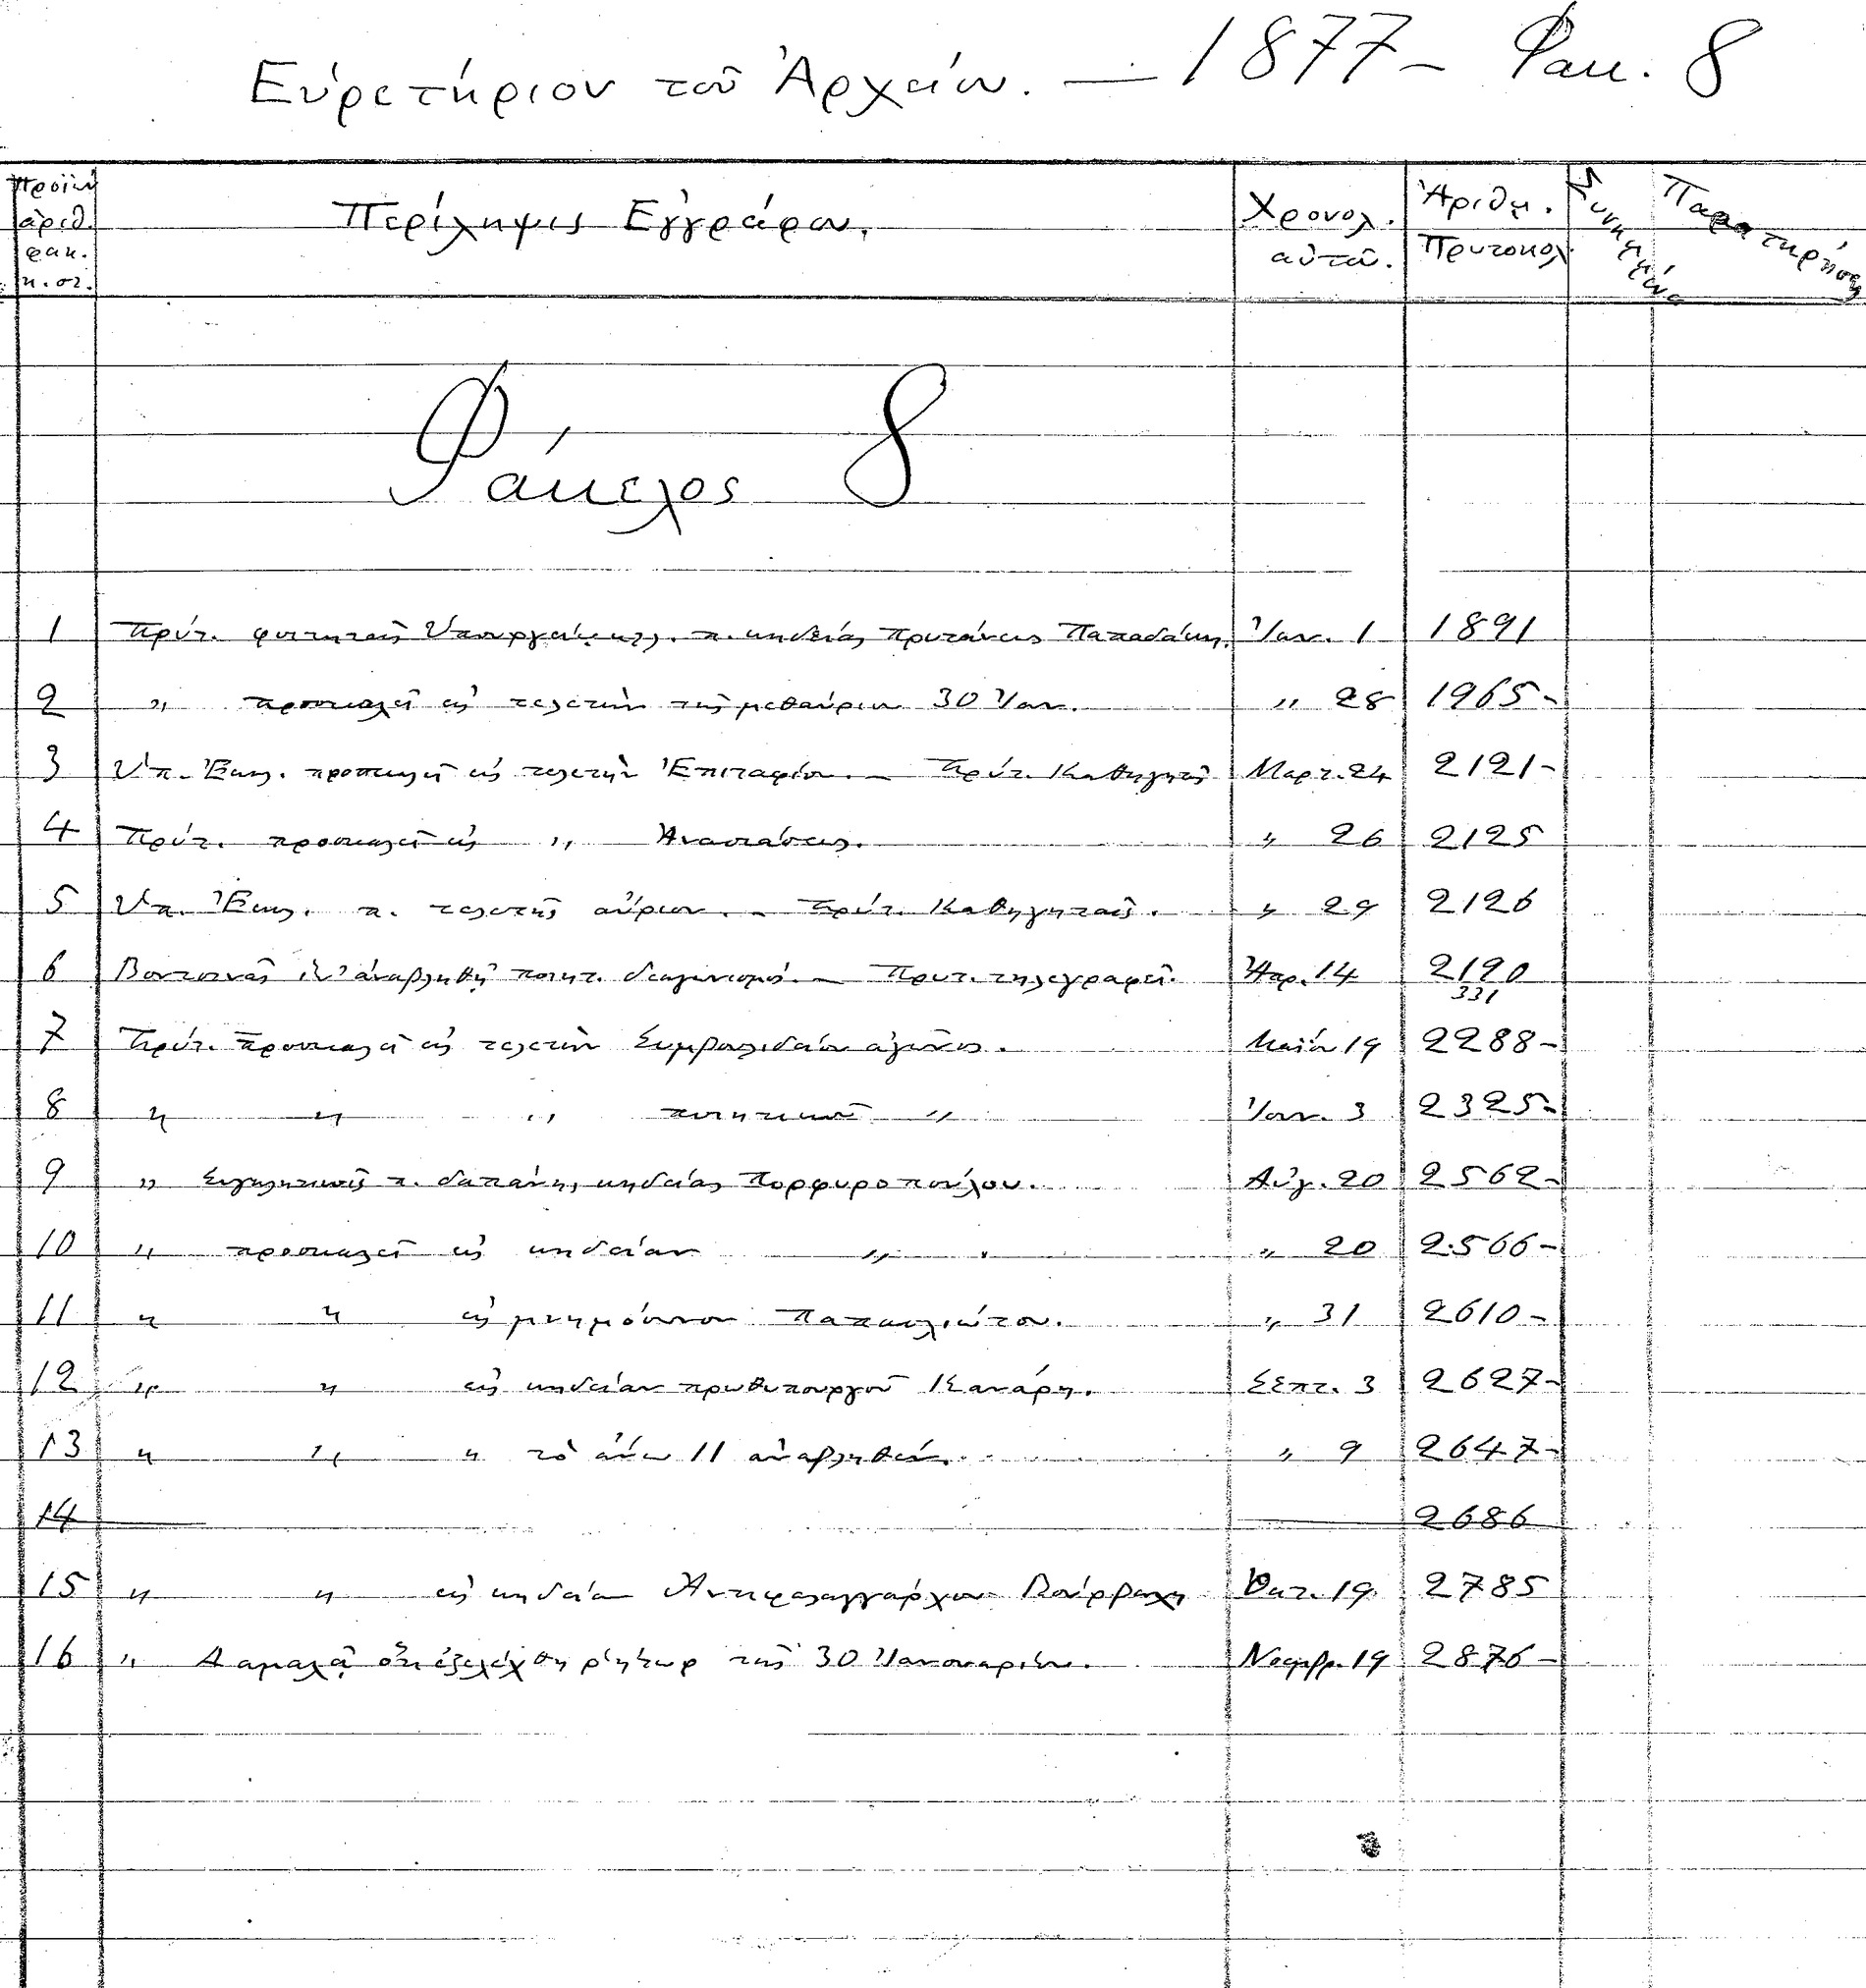 Εὑρετήριον τοῦ Ἀρχείου. — 1877 – Φακ. 8
ἀριθ.
φακ.
κ. στ.
Περίληψις Ἐγγράφου.
Χρονολ.
αὐτοῦ.
Ἀριθμ.
Πρωτοκολ.
Συνημμένα
Παρατηρήσεις
Φάκελος 8
1 Πρύτ. φοιτηταῖς π. κηδείας πρυτάνεως Παπαδάκη. Ἰαν. 1 1891
2 " προσκαλεῖ εἰς τελετὴν τῆς μεθαύριον 30 Ἰαν. " 28 1965 –
3 Ὑπ. Ἐκκλ. προσκαλεῖ εἰς τελετὴν Ἐπιταφίου. – Πρύτ. Καθηγηταῖς Μαρτ. 24 2121 –
4 Πρύτ. προσκαλεῖ εἰς " Ἀναστάσεως. " 26 2125
5 Ὑπ. Ἐκκλ. π. τελετῆς αὔριον. – Πρύτ. Καθηγηταῖς. " 29 2126
6 Βουτσινᾶς ἀναβληθῇ ποιητ. διαγωνισμός. – Πρυτ. τηλεγραφεῖ. Ἀπρ. 14 2190
331
7 Πρύτ. προσκαλεῖ εἰς τελετὴν Συμβουλιδείου ἀγῶνος. Μαΐου 19 2288 –
8 " " " ποιητικοῦ " Ἰουν. 3 2325 –
9 " Συγκλητικοῖς π. δαπάνης κηδείας Πορφυροπούλου. Αὐγ. 20 2562 –
10 " προσκαλεῖ εἰς κηδείαν " " 20 2566 –
11 " " εἰς μνημόσυνον Παπασλιώτου. " 31 2610 –
12 " " εἰς κηδείαν πρωθυπουργοῦ Κανάρη. Σεπτ. 3 2627 –
13 " " " τὸ ἄνω 11 ἀναβληθέν. " 9 2647 –
14 — 2686
15 " " εἰς κηδείαν Ἀντιφαλαγγάρχου Βούρβαχη Ὀκτ. 19 2785
16 " Δαμαλᾷ ὅτι ἐξελέχθη ῥήτωρ τῆς 30 Ἰανουαρίου. Νοεμβρ. 19 2876 –